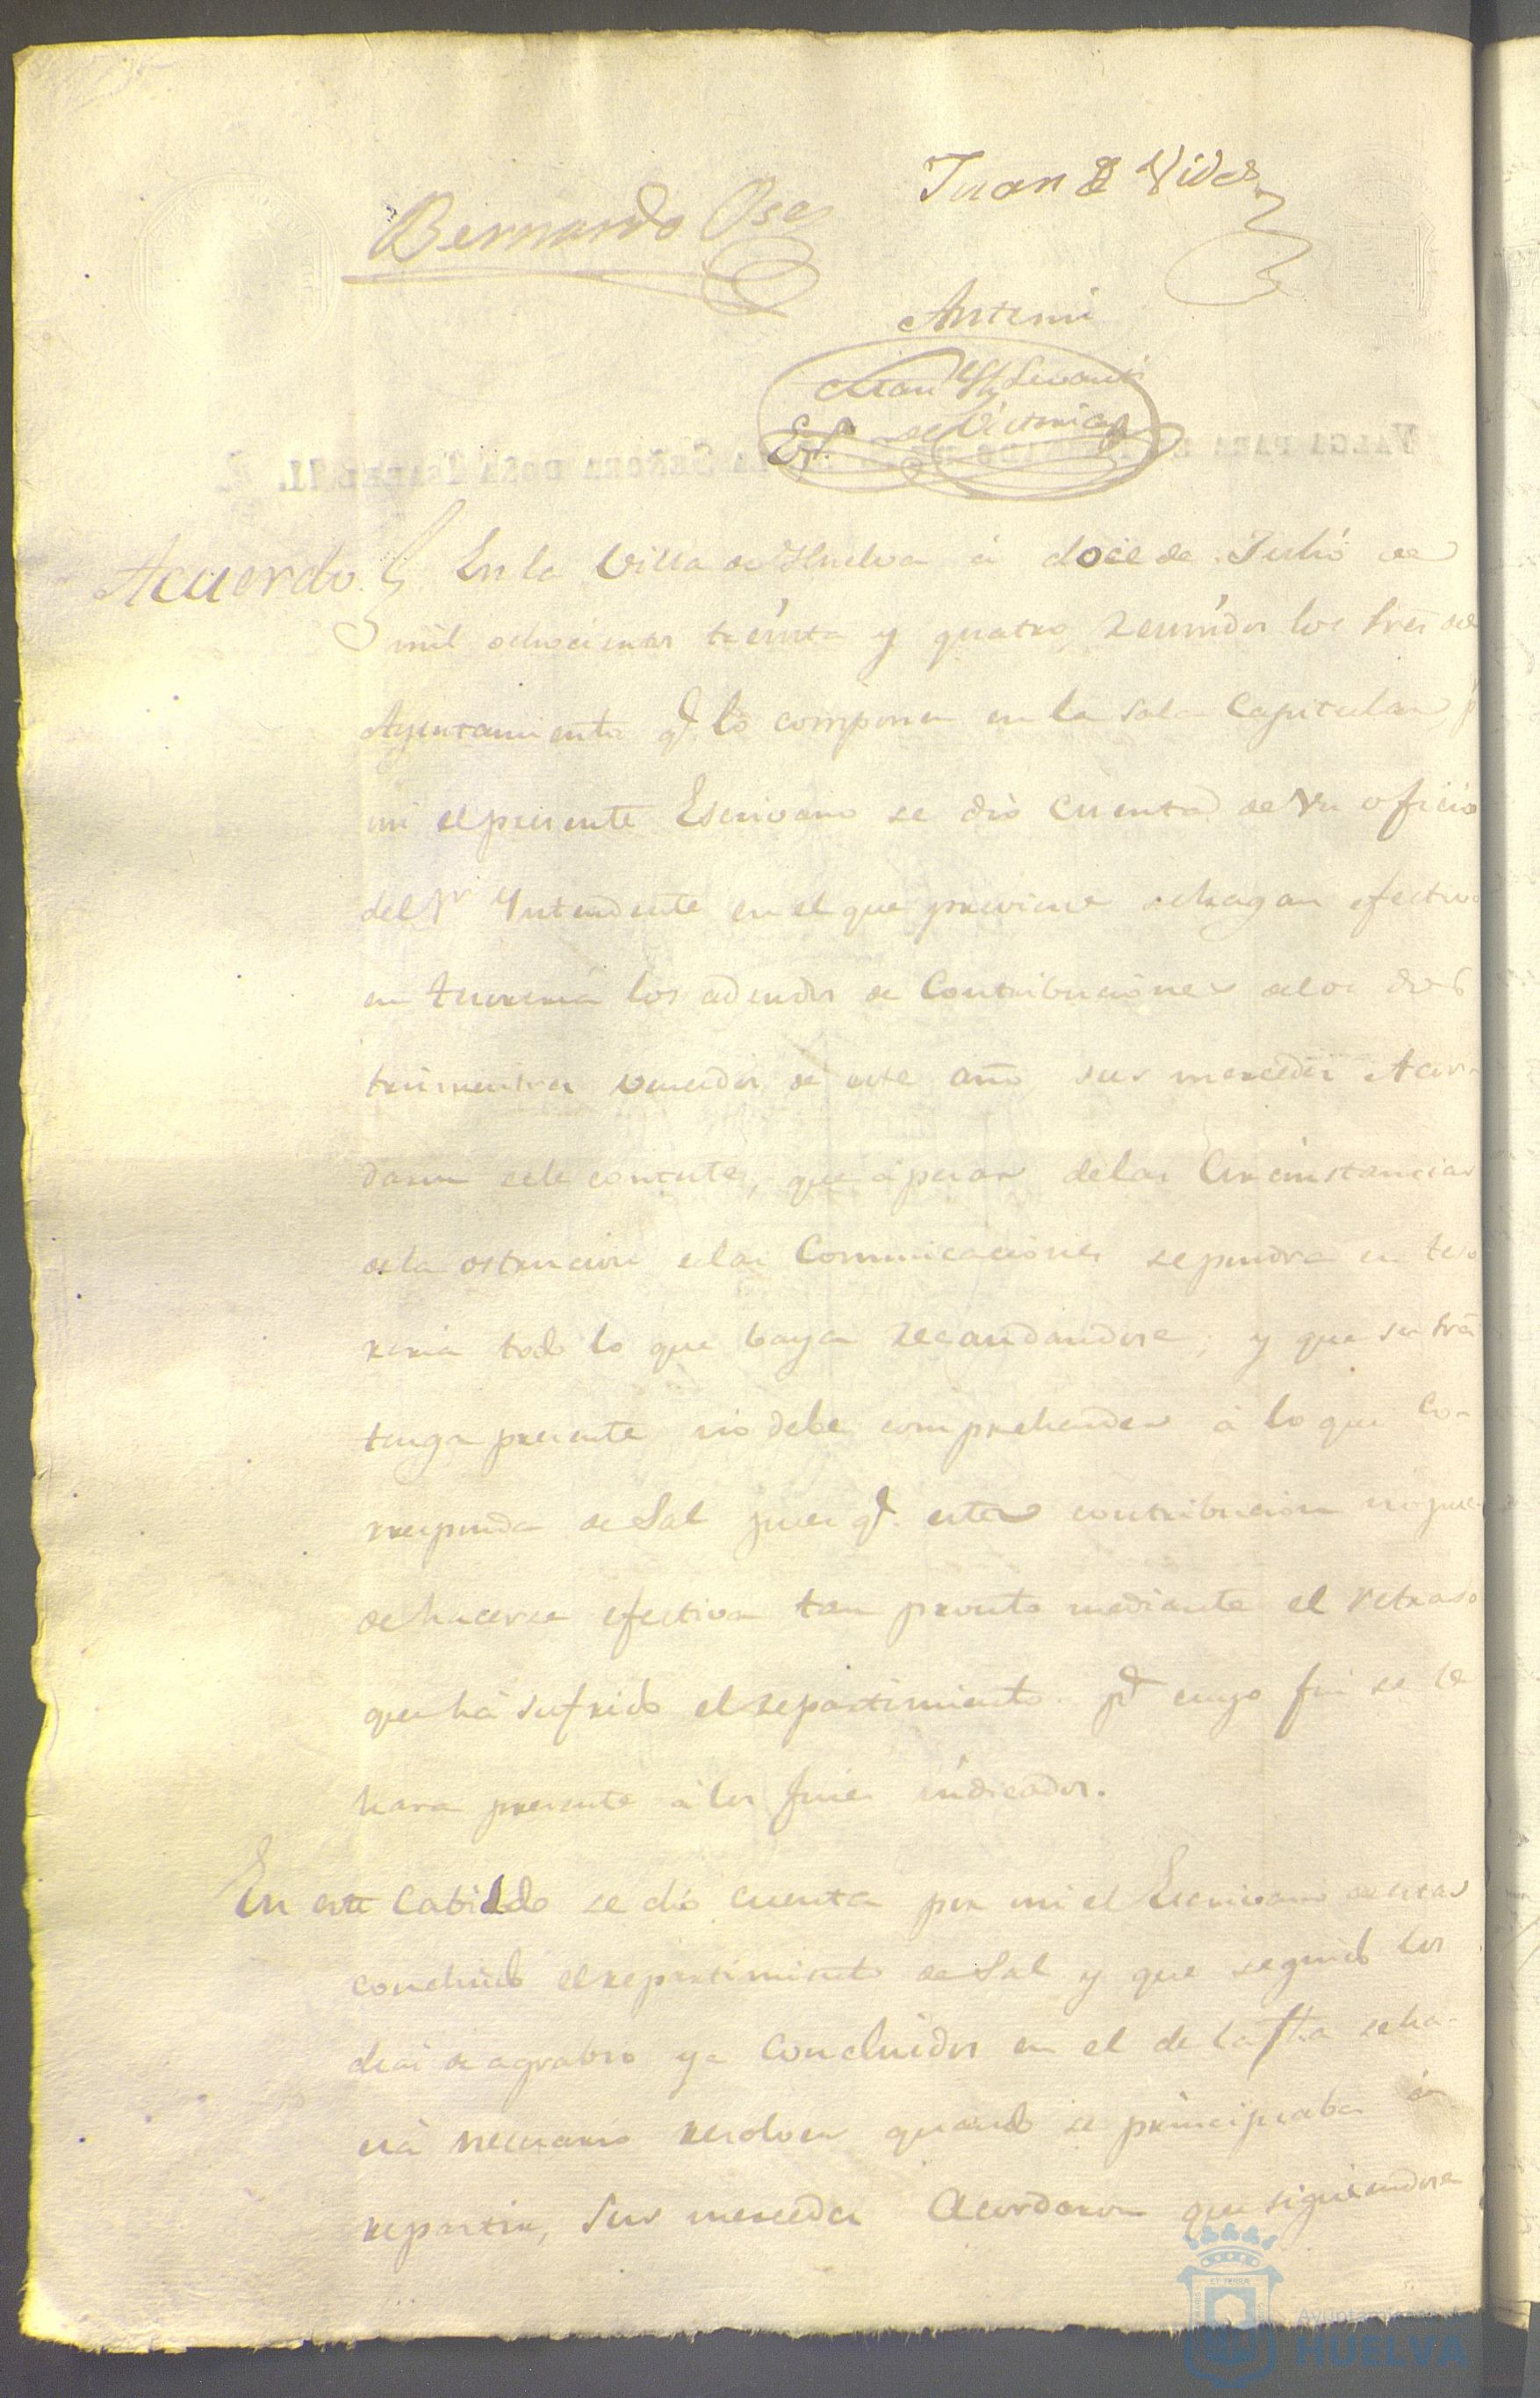 Juan de Vides
Bernardo
Antemi
Acuerdo
En la Villa de Huelva á doce de Julio de
mil ochocientos treinta y quatro, reunidos los Sres del
Ayuntamiento q.e lo componen en la Sala Capitular p.r
mi el presente Escrivano se dió cuenta de un oficio
del Sr Yntendente en el que previene se hagan efectivos
en tesoreria los adeudos de Contribuciones de los dos
trimestres vencidos de este año, sus mercedes Acor-
daron se le conteste, que á pesar de las Circunstancias
de la ostencion de las Comunicaciones se pondrá en teso
reria todo lo que baya recaudandose; y que su Sría
tenga presente no debe comprehender á lo que co-
rresponda de Sal pues q.e esta contribucion no pue
de hacerse efectiva tan pronto mediante el retraso
que há sufrido el repartimiento. p.a cuyo fin se le
hara presente á los fines indicados.
En este Cabildo se dió cuenta por mi el Escrivano de estar
concluido el repartimiento de Sal y que seguido los
dias de agrabio ya Concluidos en el de la fha se ha-
cia necesario resolver quando se principiaba á
repartir, Sus mercedes Acordaron que siguiendose
VALGA PARA EL REINADO DE LA SEÑORA DOÑA ISABEL II.
HUELVA